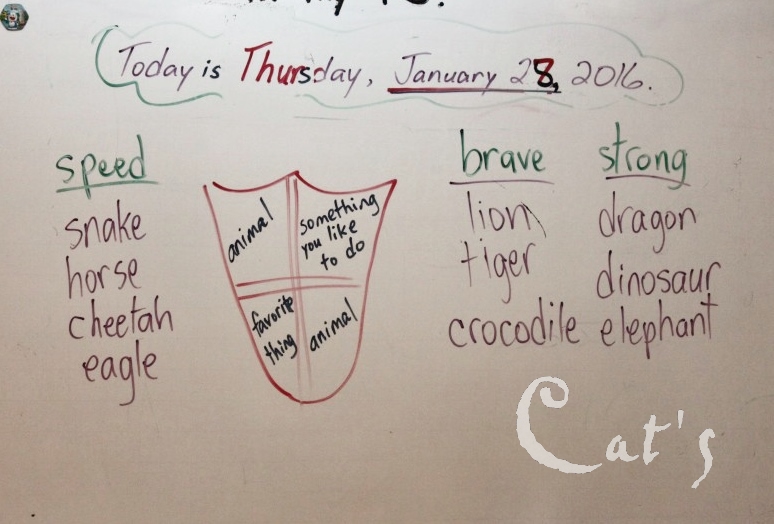 Today is Thursday, January 28, 2016.
speed
snake
horse
cheetah
eagle
animal
something
you like
to do
favorite
thing
animal
brave
lion
tiger
crocodile
strong
dragon
dinosaur
elephant
Cat's